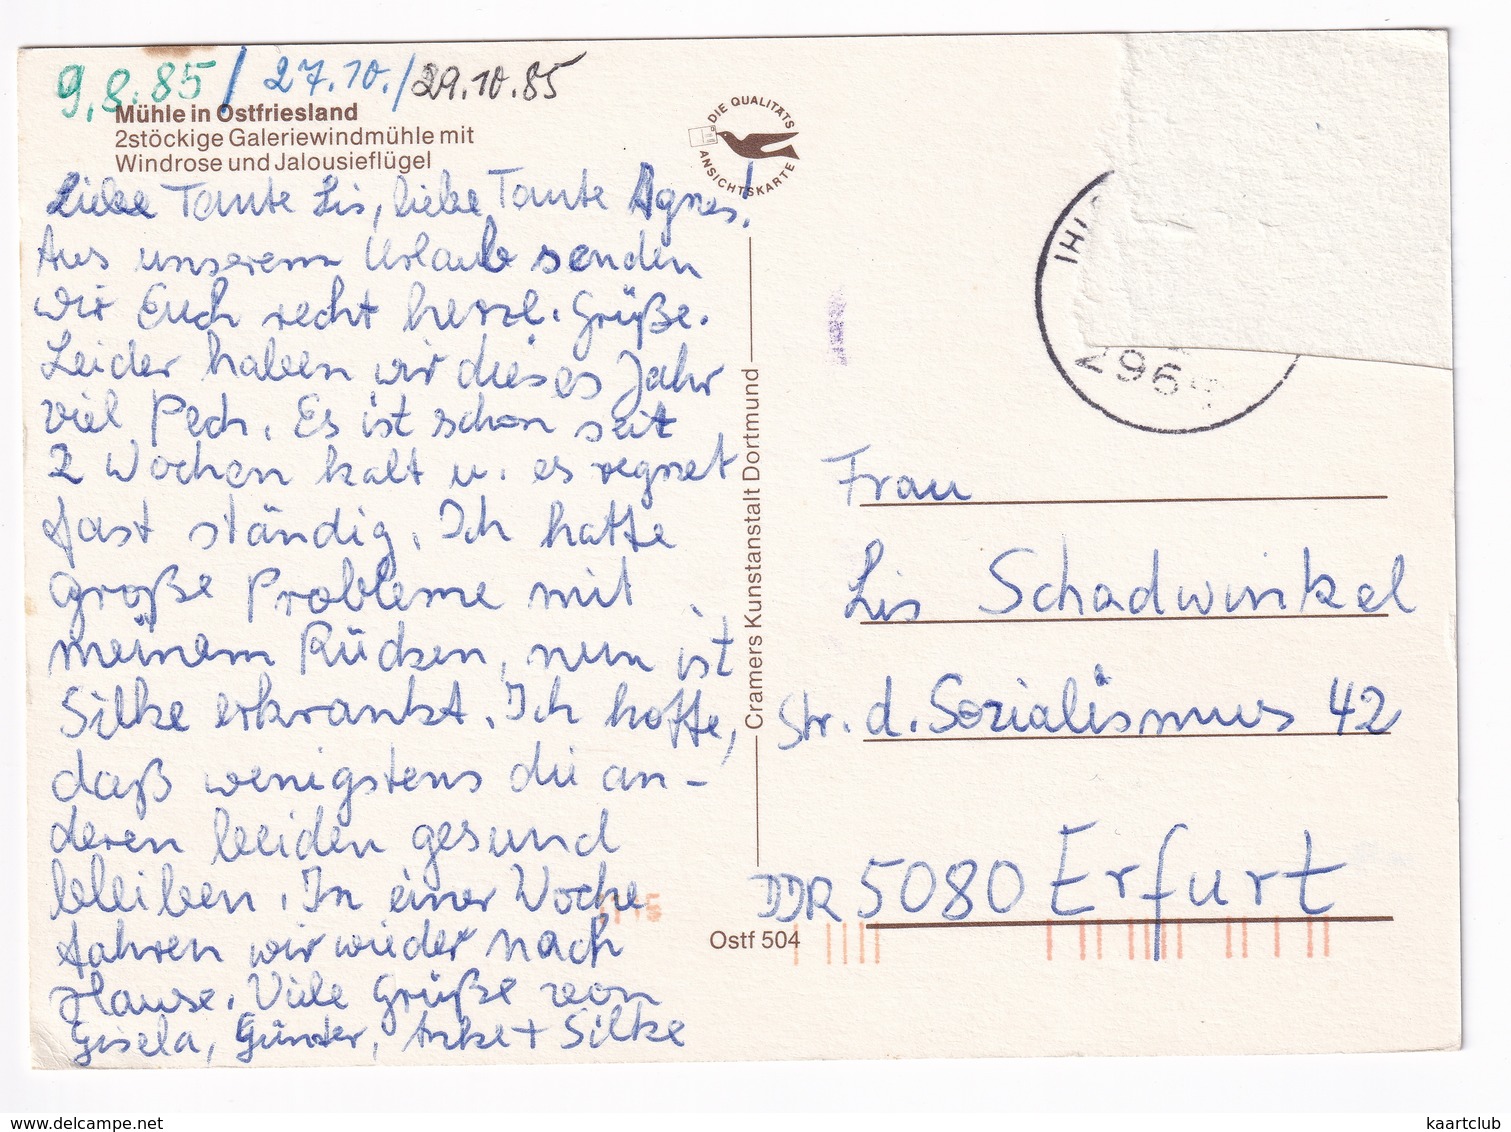 9.8.85 / 27.10. / 29.10.85
Mühle in Ostfriesland
2stöckige Galeriewindmühle mit
Windrose und Jalousieflügel
DIE QUALITÄTS
ANSICHTSKARTE
Liebe Tante Lis, liebe Tante Agnes!
Aus unserem Urlaub senden
wir Euch recht herzl. Grüße.
Leider haben wir dieses Jahr
viel Pech. Es ist schon seit
2 Wochen kalt u. es regnet
fast ständig. Ich hatte
große Probleme mit
meinem Rücken, nun ist
Silke erkrankt. Ich hoffe,
daß wenigstens die an-
deren beiden gesund
bleiben. In einer Woche
fahren wir wieder nach
Hause. Viele Grüße von
Gisela, Günter, Anke + Silke
Cramers Kunstanstalt Dortmund
Ostf 504
IHL
296
Frau
Lis Schadwinkel
Str. d. Sozialismus 42
DDR 5080 Erfurt
kaartclub